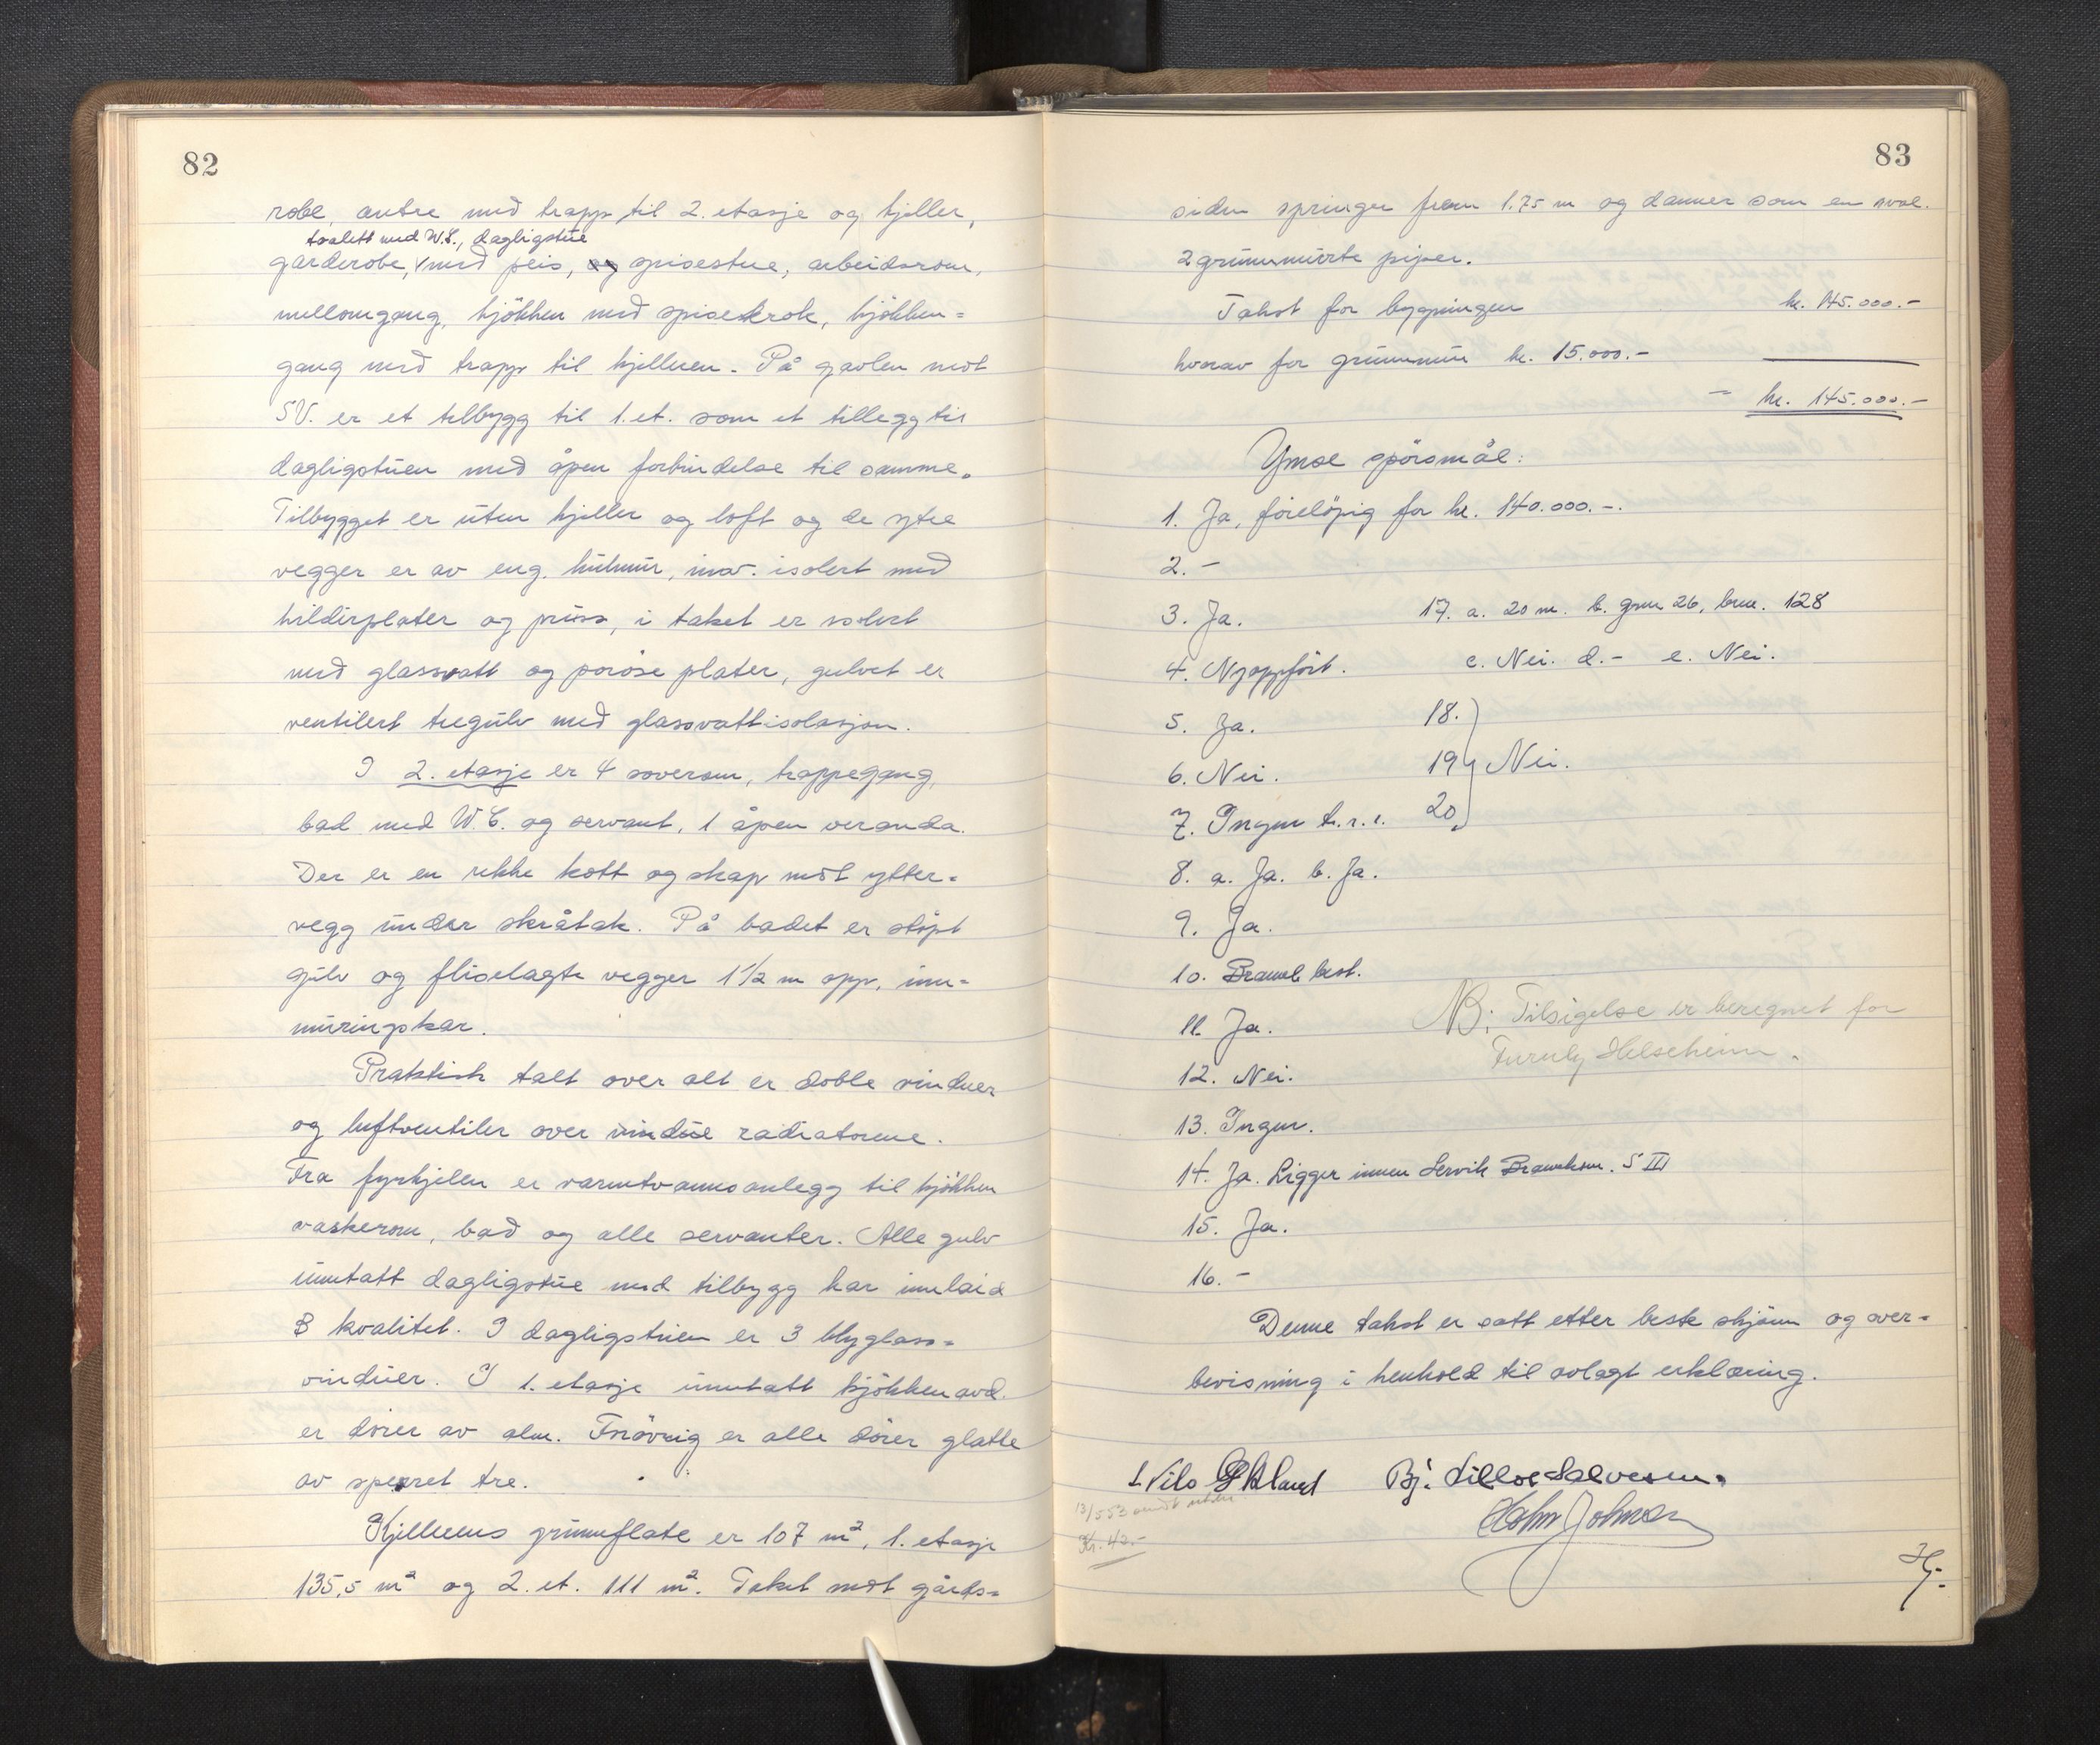 82
robe, entre med trapp til 2. etasje og kjeller,
toalett med W.C., dagligstue
garderobe, med peis, og spisestue, arbeidsrom,
mellomgang, kjökken med spisekrok, kjökken-
gang med trapp til kjelleren. På gavlen mot
SV. er et tilbygg til 1. et. som et tillegg til
dagligstuen med åpen forbindelse til samme.
Tilbygget er uten kjeller og loft og de ytre
vegger er av eng. hulmur, innv. isolert med
hildirplater og puss, i taket er isolert
med glassvatt og poröse plater, gulvet er
ventilert tregulv med glassvattisolasjon.
I 2. etasje er 4 soverom, trappegang,
bad med W.C. og servant, 1 åpen veranda.
Der er en rekke kott og skap mot ytter-
vegg under skråtak. På badet er stöpt
gulv og fliselagte vegger 1 1/2 m opp, inn-
muringskar.
Praktisk talt over alt er doble vinduer
og luftventiler over radiatorene.
Fra fyrkjelen er varmtvannsanlegg til kjökken
vaskerom, bad og alle servanter. Alle gulv
unntatt dagligstue med tilbygg har innlaid
B kvalitet. I dagligstuen er 3 blyglass-
vinduer. I 1. etasje unntatt kjökkenavd.
er dörer av alm. Forövrig er alle dörer glatte
av sperret tre.
Kjellerens grunnflate er 107 m², 1. etasje
135,5 m² og 2. et. 111 m². Taket mot gårds-
83
siden springer frem 1.75 m og danner som en sval.
2 grunnmurte piper.
Takst for bygningen kr. 145.000.-
hvorav for grunnmur kr. 15.000.-
- kr. 145.000.-
Ymse spörsmål:
1. Ja, foreløpig for kr. 140.000.-.
2. -
3. Ja. 17. a. 20 m. b. gnr 26, bnr. 128
4. Nyoppfört. c. Nei. d.- e. Nei.
5. Ja. 18.
6. Nei. 19 Nei.
7. Ingen 20.
8. a. Ja. b. Ja.
9. Ja.
10. Brannb best.
11. Ja. NB: Tilsigelse er beregnet for
Furuly Helseheim.
12. Nei.
13. Ingen.
14. Ja. Ligger innen Lervik Brannkom. S III
15. Ja.
16. -
Denne takst er satt etter beste skjönn og over-
bevisning i henhold til avlagt erklæring.
Nils Økland Bj. Lilloe Salvesen.
13/553
Kr. 42.-